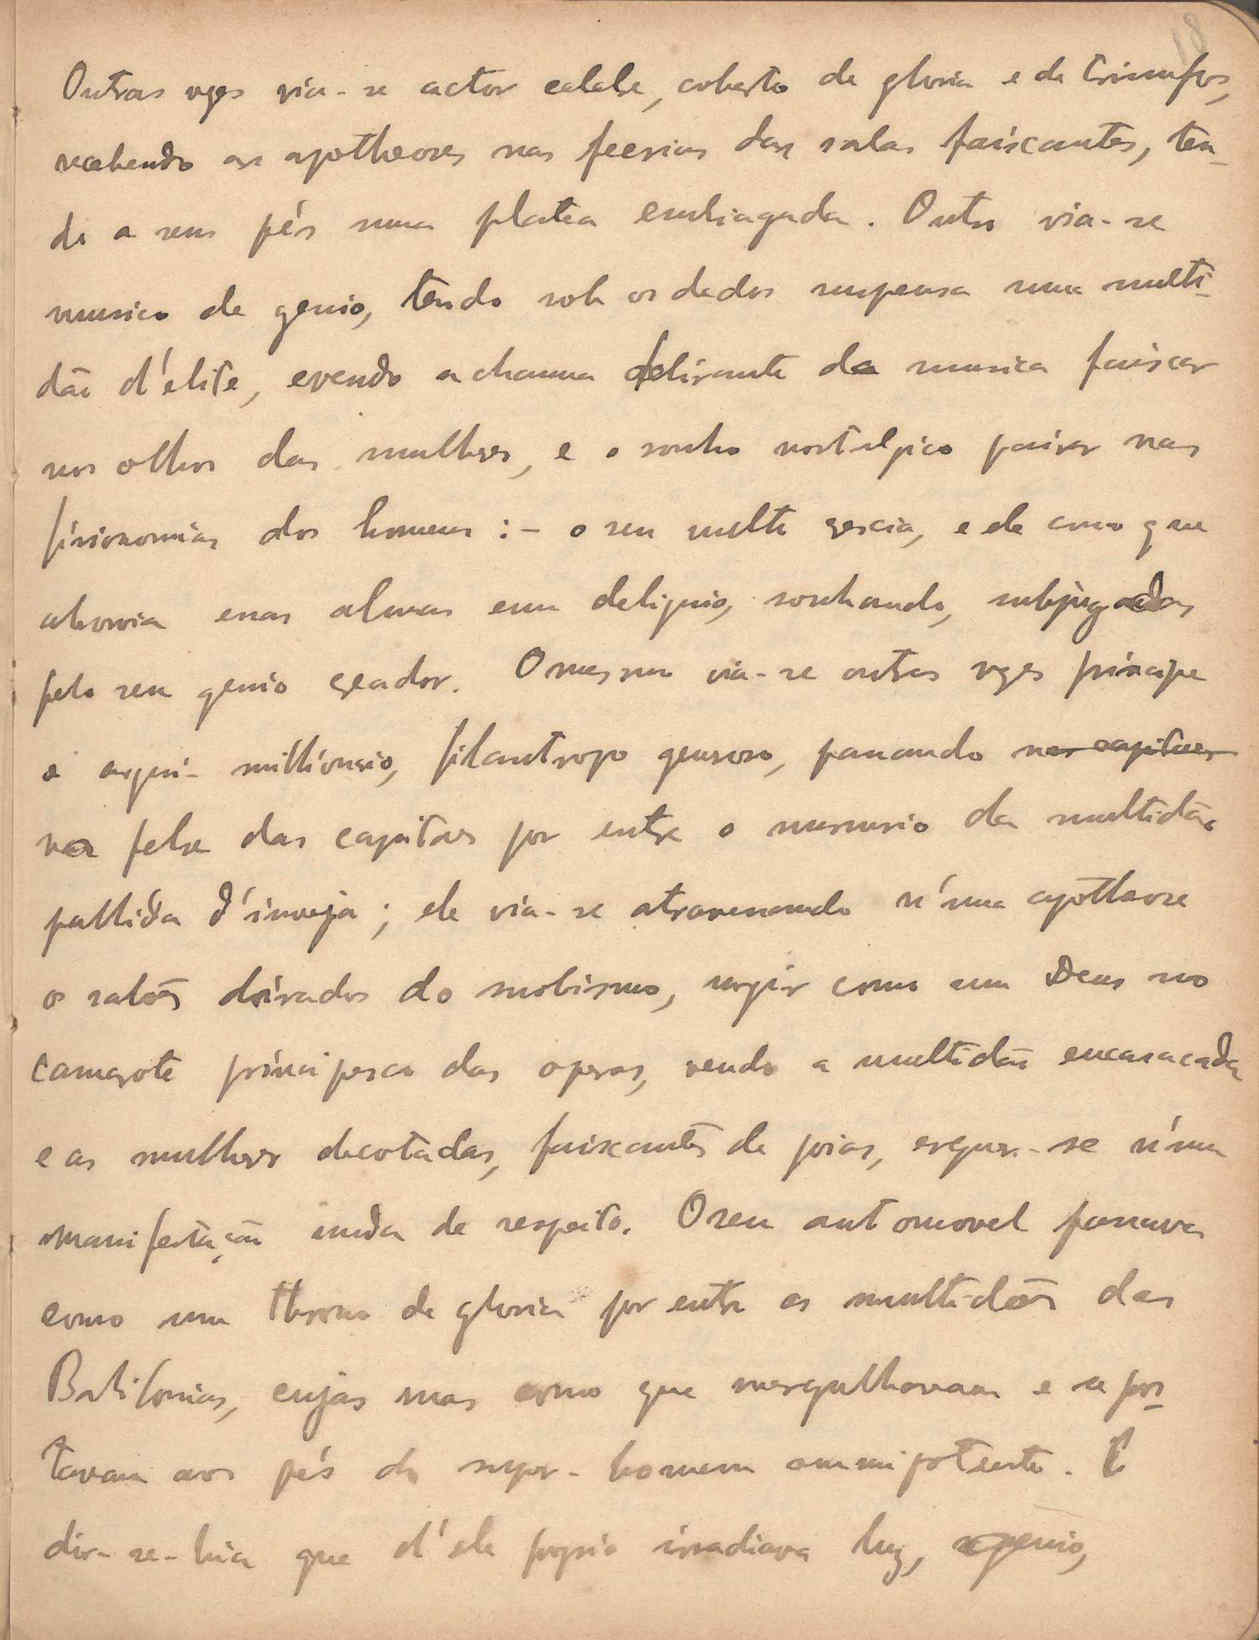 18
Outras vezes via-se actor celebre, coberto de gloria e de triumfos,
recebendo as apotheoses nas feerias das salas faíscantes, ten-
do a seus pés uma platea embriagada. Outro via-se
musico de genio, tendo sob os dedos suspensa uma multi-
dão d'elite, e vendo a chama delirante da musica faiscar
nos olhos das mulheres, e o sonho nostalgico pairar nas
fisionomias dos homens : - o seu crescia, e ele como que
absorvia essas almas em deliquio, sonhando, subjugadas
pelo seu genio creador. O mesmo via-se outras vezes principe
e arqui-millionario, filantropo generoso, passando nas capitaes
na febre das capitaes por entre o murmurio da multidão
pallida d'inveja ; ele via-se atravessando n'uma apotheose
os salões doirados do snobismo, surgir como um Deus no
camarote principesco das operas, vendo a multidão encasacada
e as mulheres decotadas, faiscantes de joias, erguer-se n'uma
manifestação muda de respeito. O seu automovel passava
como um throno de gloria por entre as multidões das
Babilonias, cujas ruas como que mergulhavam e se pros-
tavam aos pés do super-homem omnipotente. E
dir-se-hia que d'ele proprio irradiava luz, genio,